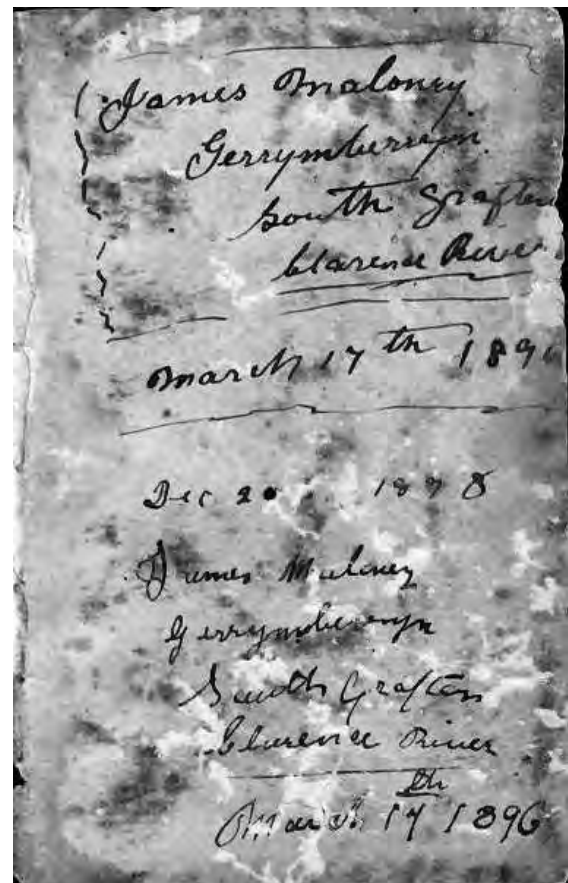 James Maloney
Gerrymberryn
South Grafton
Clarence River
March 17th 189
Dec 20 1898
James Maloney
Gerrymberryn
South Grafton
Clarence River
March 17th 1896